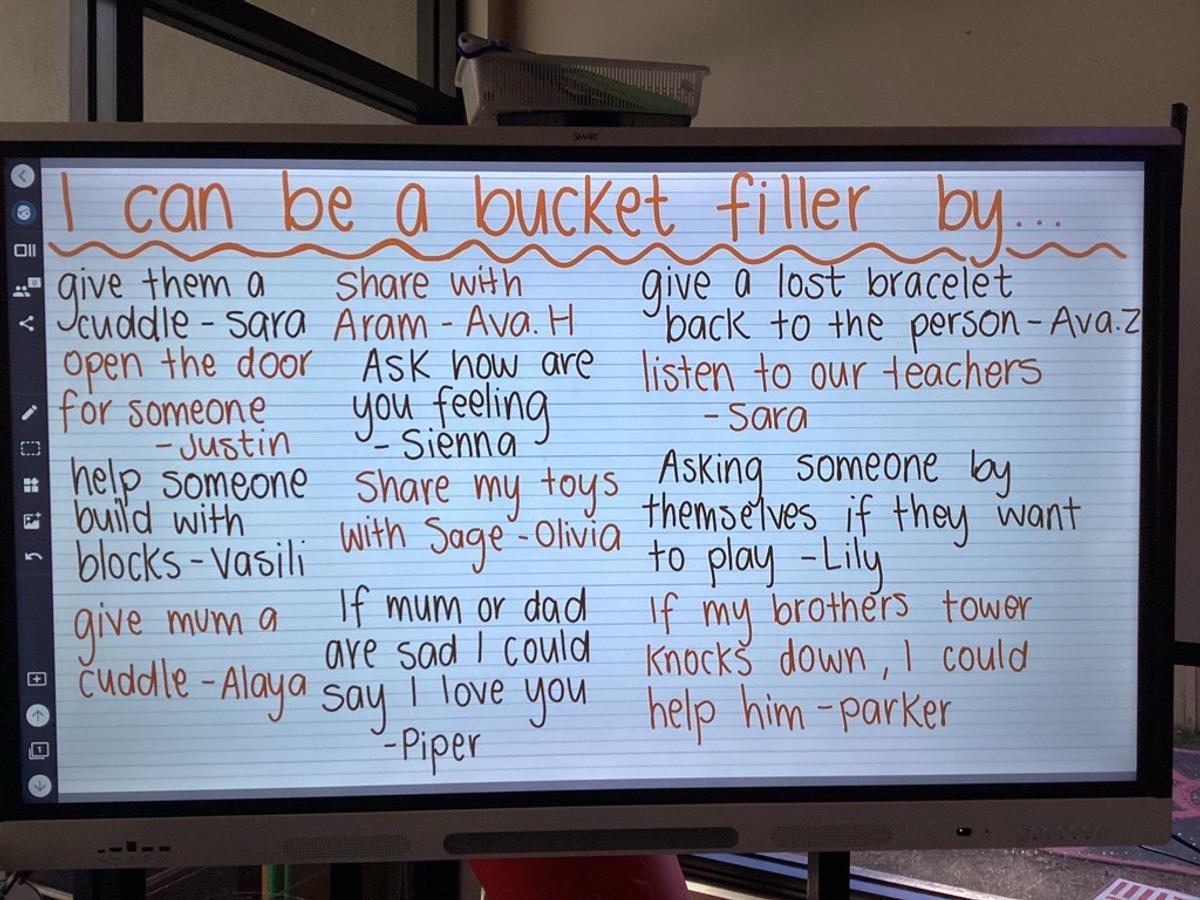 SMART
I can be a bucket filler by...
give them a
cuddle - sara
open the door
for someone
- Justin
help someone
build with
blocks - Vasili
give mum a
cuddle - Alaya
Share with
Aram - Ava. H
Ask how are
you feeling
- Sienna
Share my toys
with Sage - Olivia
If mum or dad
are sad I could
say I love you
- Piper
give a lost bracelet
back to the person - Ava.Z
listen to our teachers
- Sara
Asking someone by
themselves if they want
to play - Lily
If my brothers tower
knocks down, I could
help him - parker